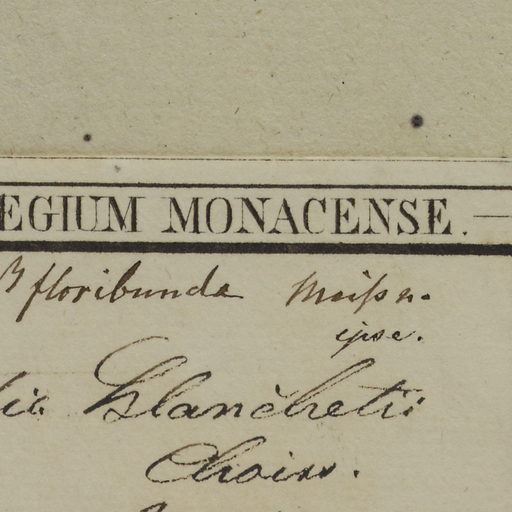 EGIUM MONACENSE. —
β floribunda Meißn.
ipse.
lia Blanchetii
Choisy.